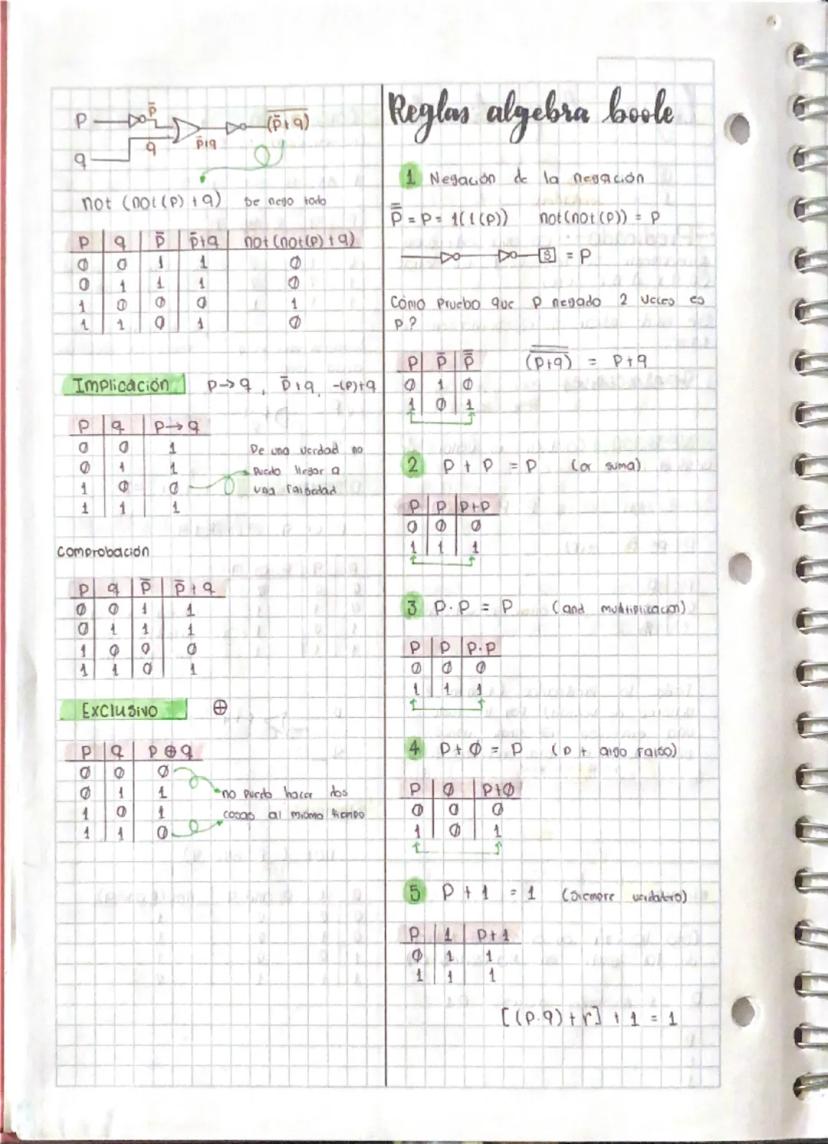 p p̅ (p̅+q)‾
q q p̅+q
not (not(p) + q) se nego todo
p q p̅ p̅+q not (not(p)+q)
0 0 1 1 0
0 1 1 1 0
1 0 0 0 1
1 1 0 1 0
Implicación p→q , p̅+q , -(p)+q
p q p→q
0 0 1 De una verdad no
0 1 1 puedo llegar a
1 0 0 una falsedad
1 1 1
comprobación
p q p̅ p̅+q
0 0 1 1
0 1 1 1
1 0 0 0
1 1 0 1
Exclusivo ⊕
p q p⊕q
0 0 0
0 1 1 no puedo hacer dos
1 0 1 cosas al mismo tiempo
1 1 0
Reglas algebra boole
1 Negación de la negación
p̿ = p = 1(1(p)) not(not(p)) = p
S = p
Cómo pruebo que p negado 2 veces es
p?
p p̅ p̿ (p+q)‾‾ = p+q
0 1 0
1 0 1
2 p + p = p (or suma)
p p p+p
0 0 0
1 1 1
3 p·p = p (and multiplicacion)
p p p·p
0 0 0
1 1 1
4 p+0 = p (p + algo falso)
p 0 p+0
0 0 0
1 0 1
5 p + 1 = 1 (siempre verdadero)
p 1 p+1
0 1 1
1 1 1
[(p·q)+r] + 1 = 1